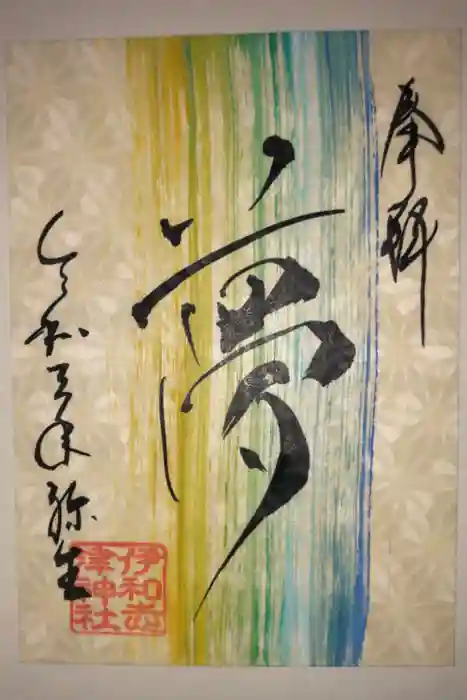 奉拝
夢
令和三年弥生
伊和志
津神社